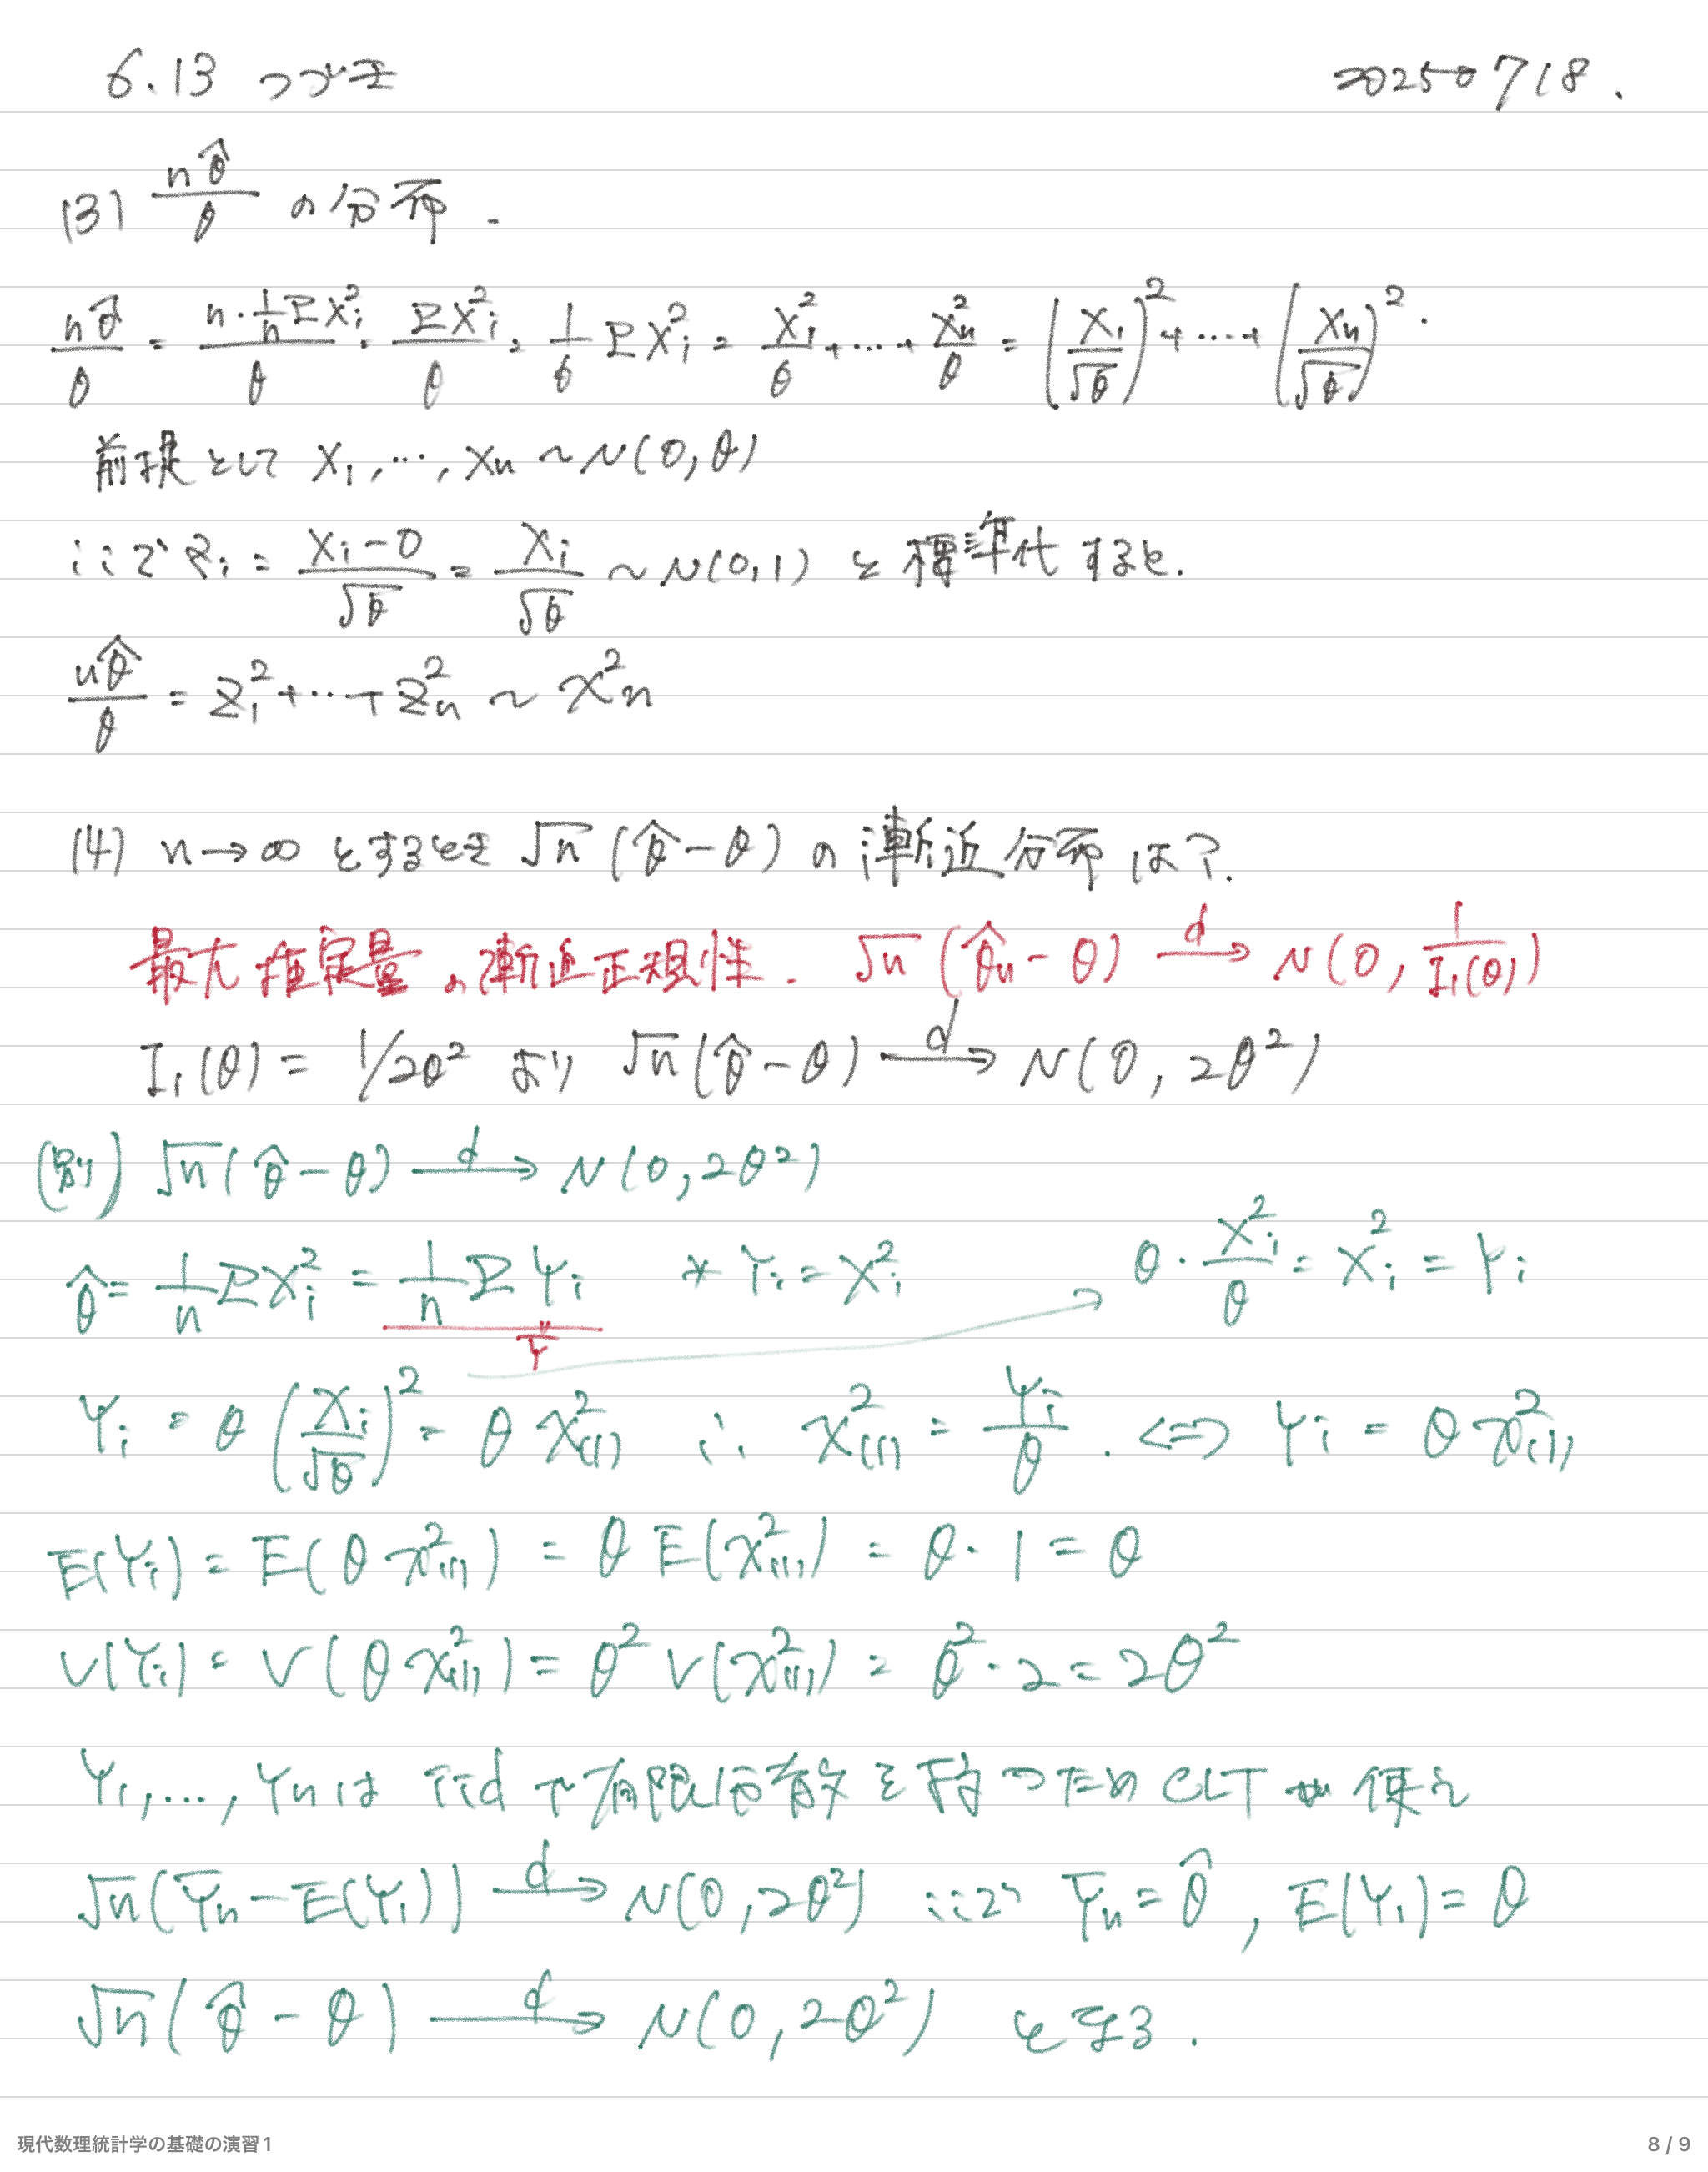 6.13 つづき
20250718.
(3) nθ̂/θ の分布.
nθ̂/θ = n・1/n ΣX²ᵢ/θ = ΣX²ᵢ/θ = 1/θ ΣX²ᵢ = X²₁/θ + … + X²ₙ/θ = (X₁/√θ)² + … + (Xₙ/√θ)².
前提として X₁, …, Xₙ ~ N(0, θ)
ここで Zᵢ = Xᵢ-0/√θ = Xᵢ/√θ ~ N(0, 1) と標準代すると.
nθ̂/θ = Z²₁ + … + Z²ₙ ~ χ²ₙ
(4) n → ∞ とするとき √n (θ̂ - θ) の漸近分布は?.
最尤推定量の漸近正規性. √n (θ̂ₙ - θ) →ᵈ N(0, 1/I₁(θ))
I₁(θ) = 1/2θ² より √n (θ̂ - θ) →ᵈ N(0, 2θ²)
(別) √n (θ̂ - θ) →ᵈ N(0, 2θ²)
θ̂ = 1/n ΣX²ᵢ = 1/n ΣYᵢ * Yᵢ = X²ᵢ
θ・X²ᵢ/θ = X²ᵢ = Yᵢ
Ȳ
Yᵢ = θ (Xᵢ/√θ)² = θ χ²₍₁₎ ∴ χ²₍₁₎ = Yᵢ/θ. ⇔ Yᵢ = θ χ²₍₁₎
E(Yᵢ) = E(θ χ²₍₁₎) = θ E(χ²₍₁₎) = θ・1 = θ
V(Yᵢ) = V(θ χ²₍₁₎) = θ² V(χ²₍₁₎) = θ²・2 = 2θ²
Y₁, …, Yₙ は iid で有限分散を持つため CLT が使え
√n (Ȳₙ - E(Y₁)) →ᵈ N(0, 2θ²) ここで Ȳₙ = θ̂, E(Y₁) = θ
√n (θ̂ - θ) →ᵈ N(0, 2θ²) となる.
現代数理統計学の基礎の演習1
8 / 9